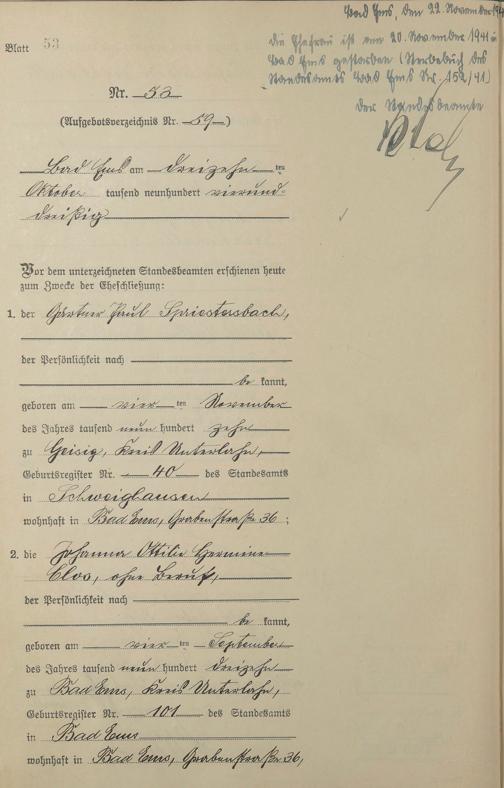 Bad Ems, den 22. November 1941
die Ehefrau ist am 20. November 1941 in
Bad Ems gestorben (Sterbebuch des
Standesamts Bad Ems Nr. 152/41)
Der Standesbeamte
Blatt 53
Nr. 53
(Aufgebotsverzeichnis Nr. 59)
Bad Ems am dreizehn ten
Oktober tausend neunhundert vierund-
dreißig
Vor dem unterzeichneten Standesbeamten erschienen heute
zum Zwecke der Eheschließung:
1. der Gärtner Paul Spriestersbach,
der Persönlichkeit nach
be kannt,
geboren am vier ten November
des Jahres tausend neun hundert zehn
zu Geisig, Kreis Unterlahn,
Geburtsregister Nr. 40 des Standesamts
in Schweighausen
wohnhaft in Bad Ems, Grabenstraße 36;
2. die Johanna Ottilie Hermine
Clos, ohne Beruf,
der Persönlichkeit nach
be kannt,
geboren am vier ten September
des Jahres tausend neun hundert dreizehn
zu Bad Ems, Kreis Unterlahn,
Geburtsregister Nr. 101 des Standesamts
in Bad Ems
wohnhaft in Bad Ems, Grabenstraße 36,